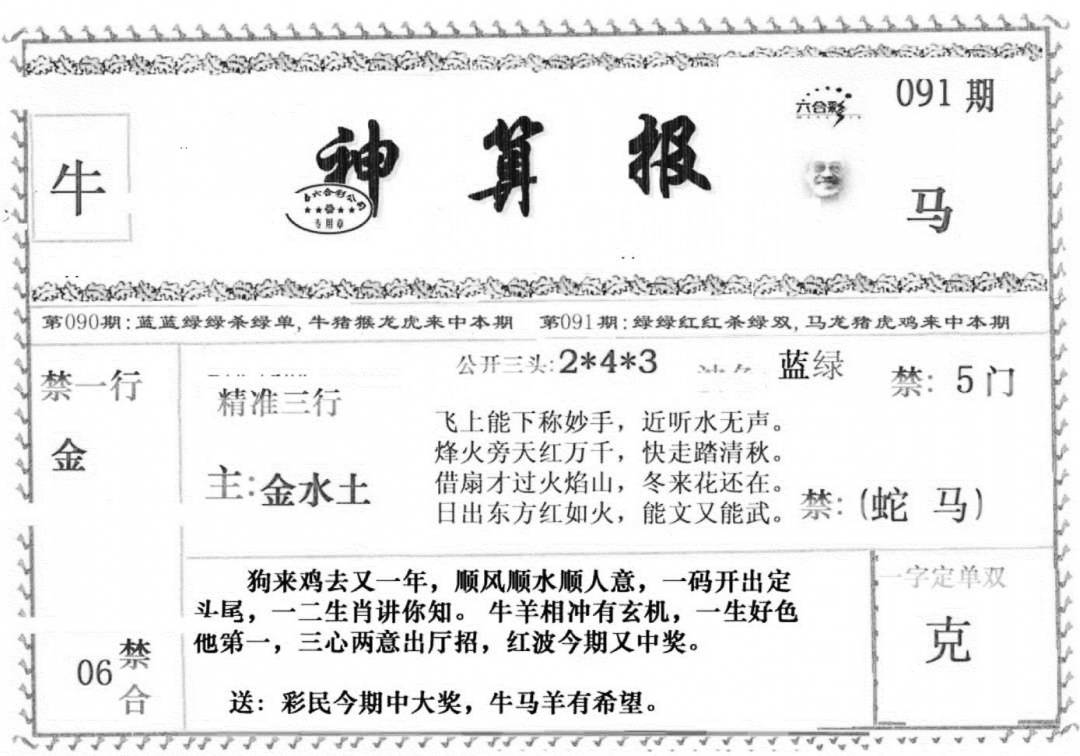 091 期
六合彩
神 算 报
牛
马
六合彩公司
专用章
第090期:蓝蓝绿绿杀绿单,牛猪猴龙虎来中本期 第091期:绿绿红红杀绿双,马龙猪虎鸡来中本期
禁一行
金
精准三行
主:金水土
公开三头:2*4*3
蓝绿
禁: 5门
飞上能下称妙手，近听水无声。
烽火旁天红万千，快走踏清秋。
借扇才过火焰山，冬来花还在。
日出东方红如火，能文又能武。
禁:(蛇 马)
狗来鸡去又一年，顺风顺水顺人意，一码开出定
头尾，一二生肖讲你知。 牛羊相冲有玄机，一生好色
他第一，三心两意出厅招，红波今期又中奖。
送：彩民今期中大奖，牛马羊有希望。
一字定单双
克
06
禁
合